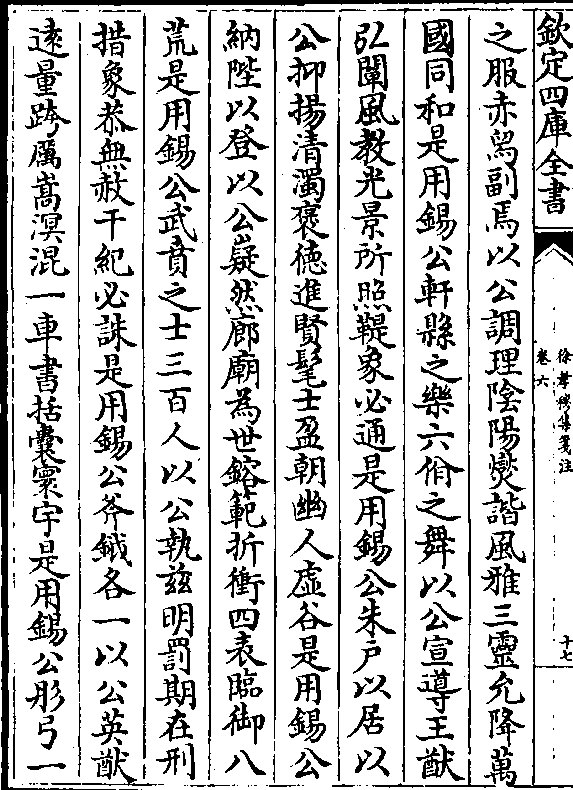 欽定四庫全書
徐孝穆集箋注
卷六
十七
之服赤舄副焉以公調理陰陽爕諧風雅三靈允降萬
國同和是用錫公軒縣之樂六佾之舞以公宣導王猷
弘闡風教光景所照鞮象必通是用錫公朱户以居以
公抑揚清濁褒德進賢髦士盈朝幽人虚谷是用錫公
納陛以登以公嶷然廊廟為世鎔範折衝四表臨御八
荒是用錫公武賁之士三百人以公執兹明罰期在刑
措象恭無赦干紀必誅是用錫公斧鉞各一以公英猷
逺量跨厲嵩溟混一車書括囊寰宇是用錫公彤弓一